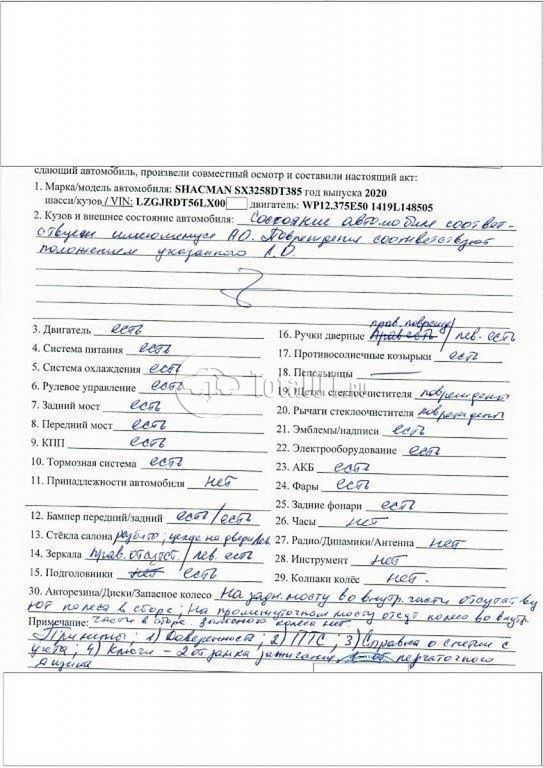 сдающий автомобиль, произвели совместный осмотр и составили настоящий акт:
1. Марка/модель автомобиля: SHACMAN SX3258DT385 год выпуска 2020
шасси/кузов / VIN: LZGJRDT56LX00 двигатель: WP12.375E50 1419L148505
2. Кузов и внешнее состояние автомобиля: Состояние автомобиля соответ-
ствует имеющемуся АО. Повреждения соответствуют
положениям указанного А.О.
3. Двигатель есть
4. Система питания есть
5. Система охлаждения есть
6. Рулевое управление есть
7. Задний мост есть
8. Передний мост есть
9. КПП есть
10. Тормозная система есть
11. Принадлежности автомобиля нет
12. Бампер передний/задний есть/есть
13. Стёкла салона разбито; целое на двери лев.
14. Зеркала прав. отсутст. / лев. есть
15. Подголовники нет есть
прав. поврежд
16. Ручки дверные прав есть / лев. есть
17. Противосолнечные козырьки есть
18. Пепельницы —
19. Щетки стеклоочистителя повреждены
20. Рычаги стеклоочистителя повреждены
21. Эмблемы/надписи есть
22. Электрооборудование есть
23. АКБ есть
24. Фары есть
25. Задние фонари есть
26. Часы нет
27. Радио/Динамики/Антенна нет
28. Инструмент нет
29. Колпаки колёс нет.
30. Авторезина/Диски/Запасное колесо На задн. мосту во внутр. части отсутствуют
колеса в сборе; На промежуточном мосту отсут колесо во внутр.
Примечание: части в сборе. Запасного колеса нет.
Приняты: 1) Доверенность; 2) ПТС; 3) Справка о снятии с
учета; 4) Ключи – 2 от замка зажигания, от перчаточного
ящика
Total01.ru